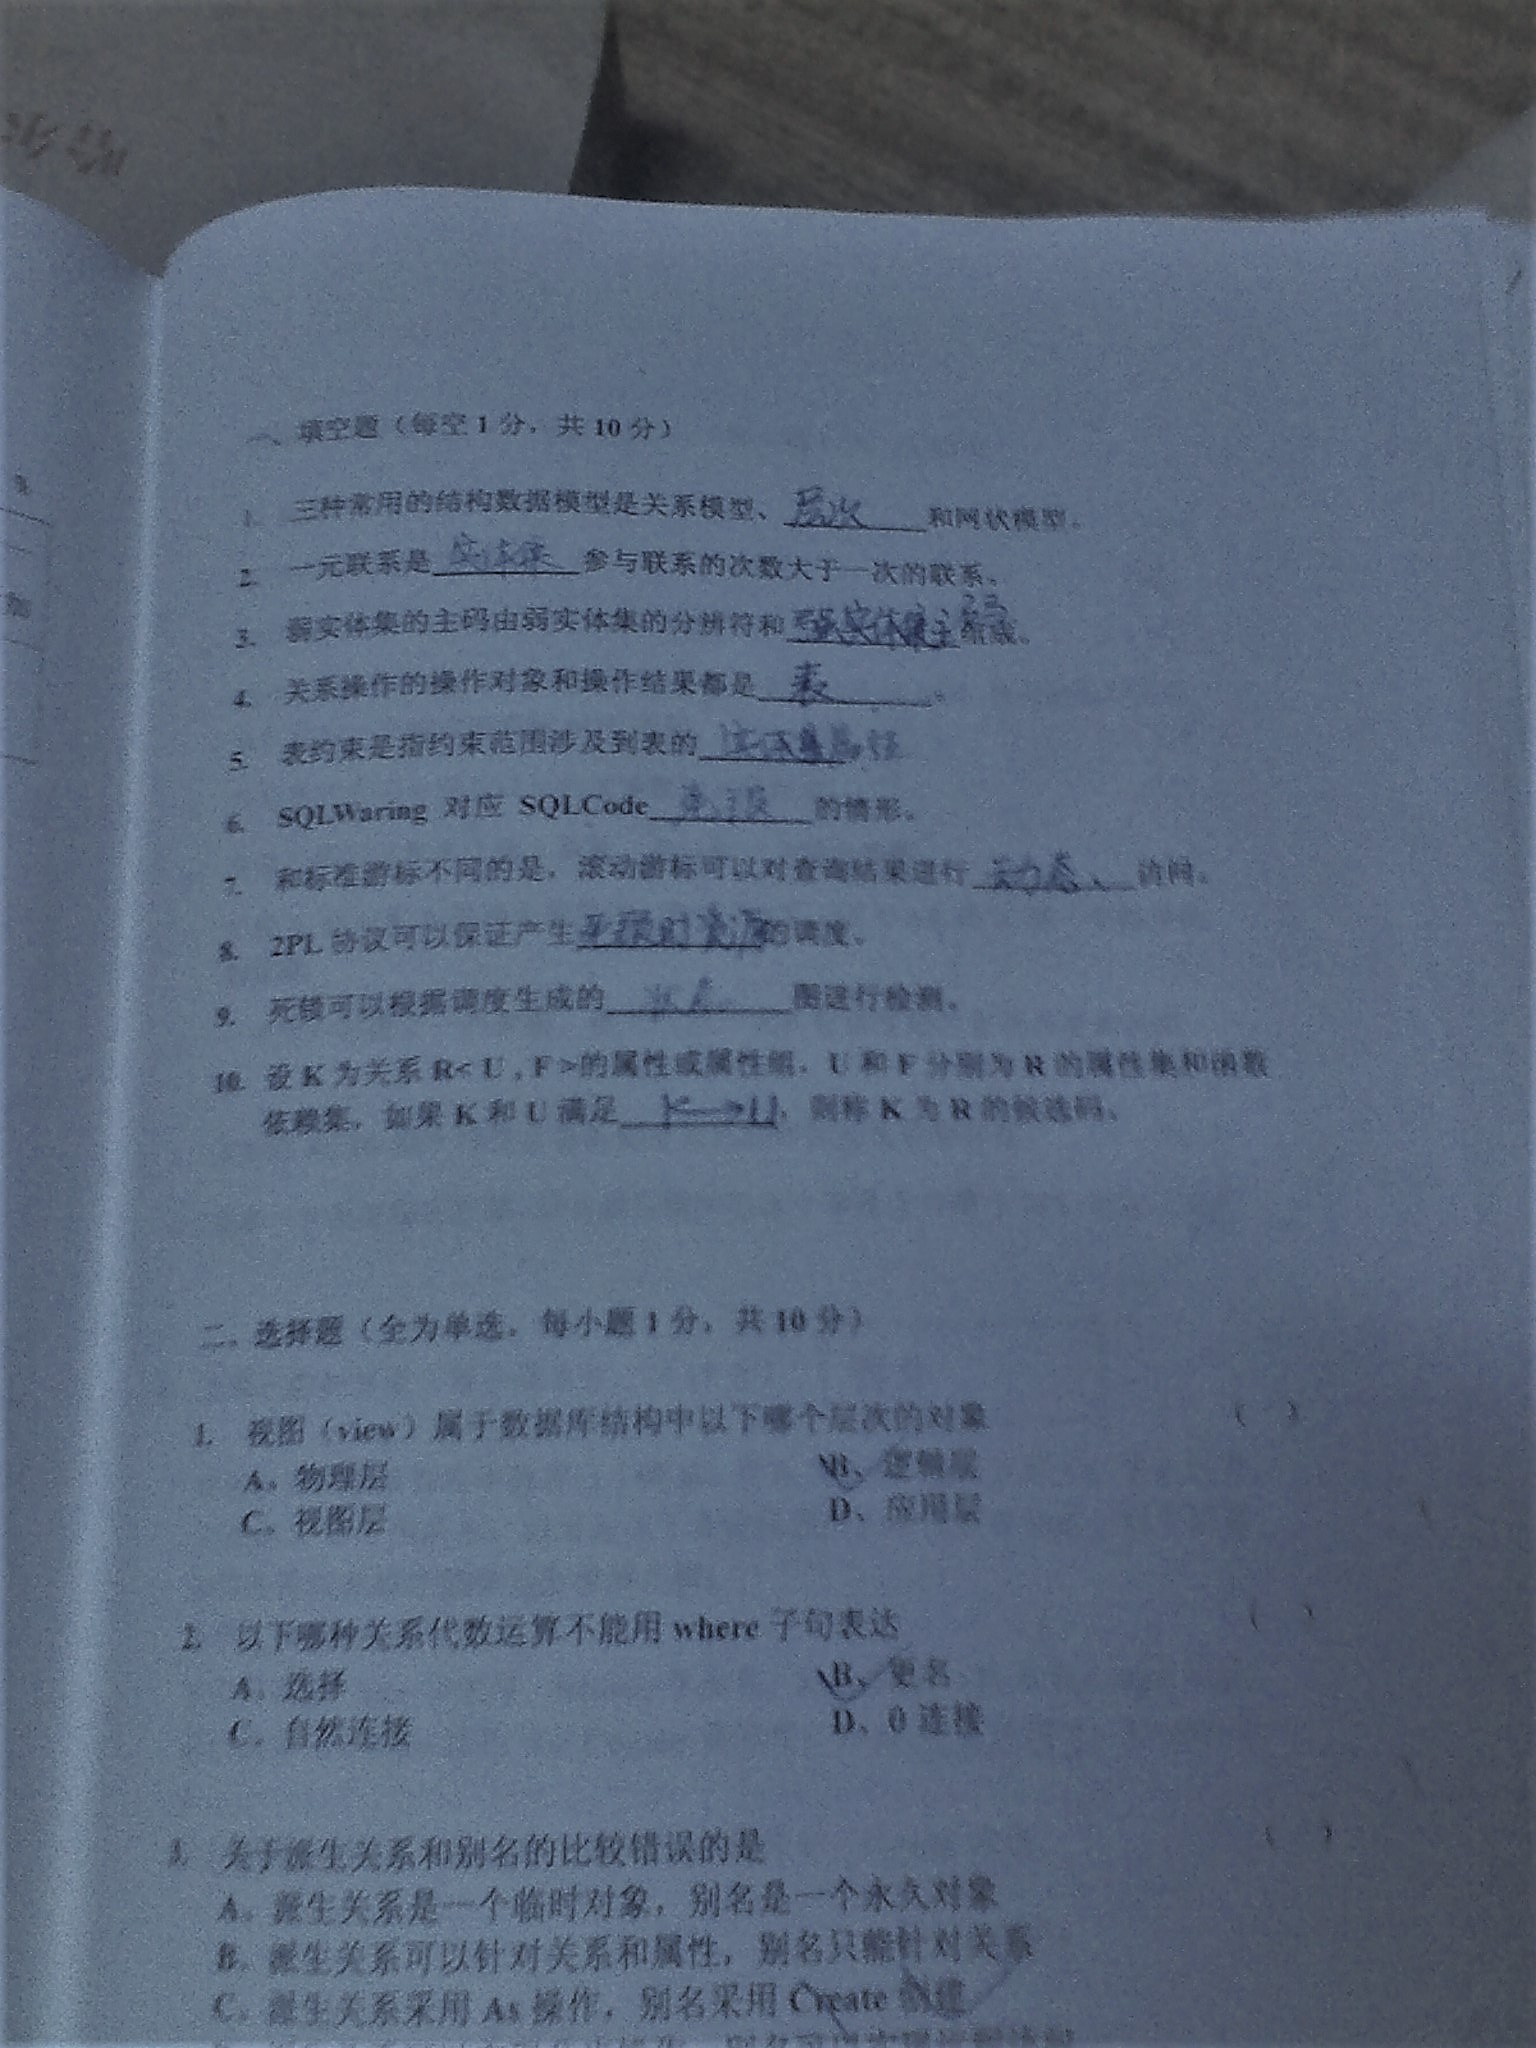 一、填空题（每空 1 分，共 10 分）
1. 三种常用的结构数据模型是关系模型、层次 和网状模型。
2. 一元联系是 实体集 参与联系的次数大于一次的联系。
3. 弱实体集的主码由弱实体集的分辨符和 强实体集主码 组成。
4. 关系操作的操作对象和操作结果都是 表 。
5. 表约束是指约束范围涉及到表的
6. SQLWaring 对应 SQLCode 的情形。
7. 和标准游标不同的是，滚动游标可以对查询结果进行 动态、 访问。
8. 2PL 协议可以保证产生 的调度。
9. 死锁可以根据调度生成的 图进行检测。
10. 设 K 为关系 R< U , F >的属性或属性组，U 和 F 分别为 R 的属性集和函数
依赖集，如果 K 和 U 满足 K→U ，则称 K 为 R 的候选码。
二、选择题（全为单选，每小题 1 分，共 10 分）
1. 视图（view）属于数据库结构中以下哪个层次的对象 （ ）
A、物理层 B、逻辑层
C、视图层 D、应用层
2. 以下哪种关系代数运算不能用 where 子句表达 （ ）
A、选择 B、更名
C、自然连接 D、θ 连接
3. 关于派生关系和别名的比较错误的是 （ ）
A、派生关系是一个临时对象，别名是一个永久对象
B、派生关系可以针对关系和属性，别名只能针对关系
C、派生关系采用 As 操作，别名采用 Create 创建